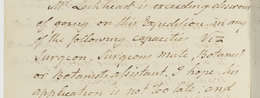 Mr Lockhead is exceeding desirous
of going on this Expedition in any
of the following capacities Viz
Surgeon, Surgeons mate, Botanist
or Botanists assistant. I hope his
application is not too late, and